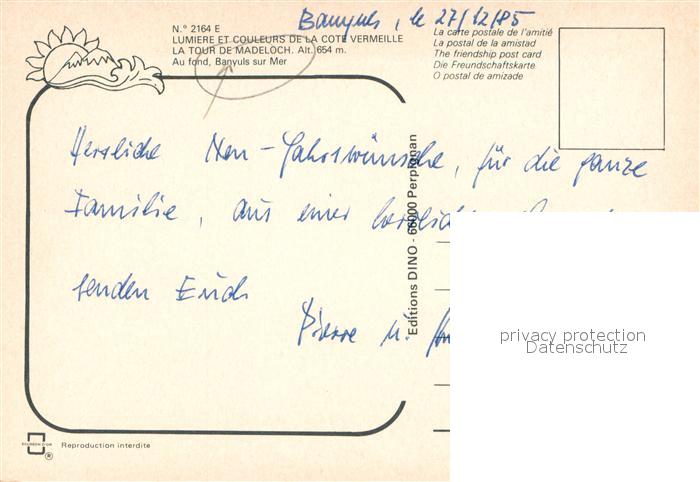 Banyuls, le 27/12/85
N.° 2164 E
LUMIERE ET COULEURS DE LA COTE VERMEILLE
LA TOUR DE MADELOCH. Alt. 654 m.
Au fond, Banyuls sur Mer
La carte postale de l'amitié
La postal de la amistad
The friendship post card
Die Freundschaftskarte
O postal de amizade
Herzliche Neu-Jahrswünsche, für die ganze
Familie, aus einer
senden Euch
Pierre u.
Editions DINO - 66000 Perpignan
privacy protection
Datenschutz
Reproduction interdite
®